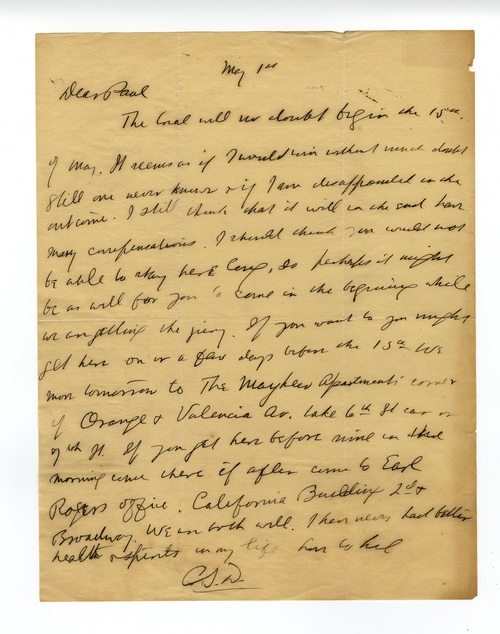 May 1st
Dear Paul
The trial will no doubt begin the 15th
of May. It seems as if I would win without much doubt
Still one never knows & if I am disappointed in the
outcome. I still think that it will in the end have
many compensations. I should think you would not
be able to stay here long, so perhaps it might
be as well for you to come in the beginning while
we are getting the jury. If you want to you might
get here on or a few days before the 15th We
move tomorrow to The Mayhew Apartments corner
of Orange & Valencia Av. take 6th St car or
7th St. If you get here before nine in
morning come there if after come to Earl
Rogers office. California Building 2d &
Broadway. We are both well. I have never had better
health & spirits in my life
C.S.D.